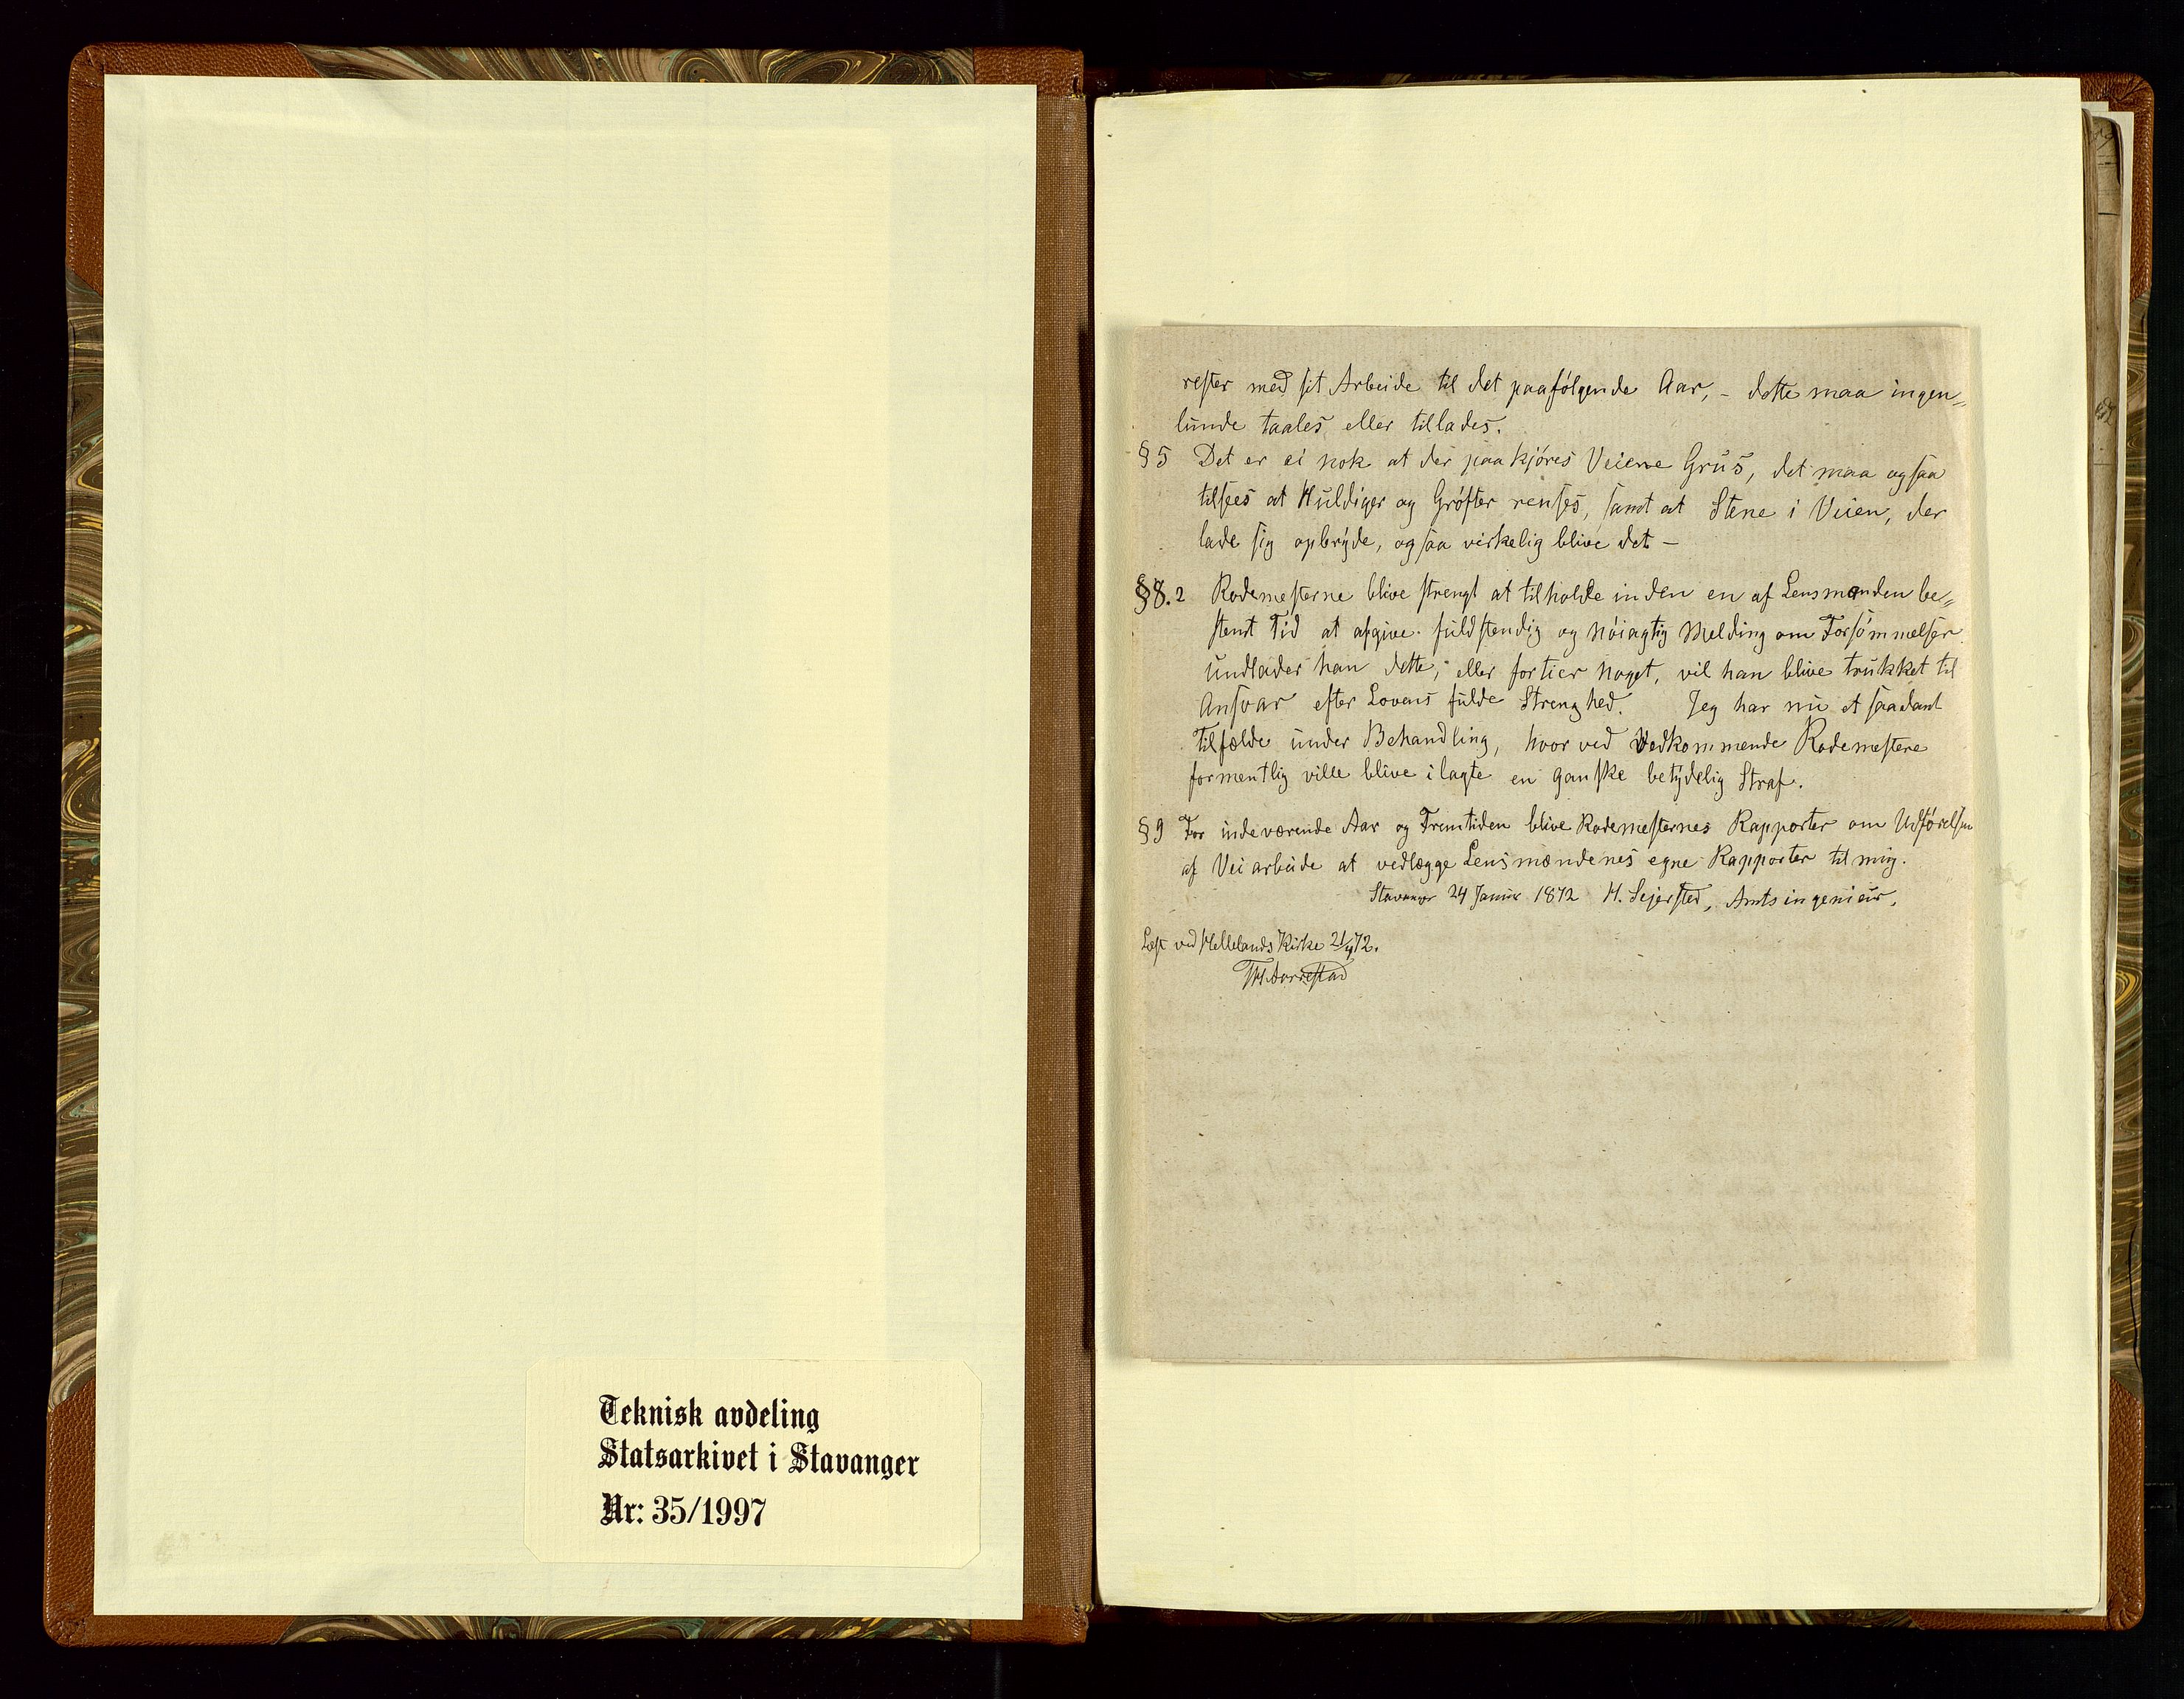 Teknisk avdeling
Statsarkivet i Stavanger
Nr: 35/1997
rester med sit Arbeide til det paafölgende Aar, - dette maa ingen„
lunde taales eller tillades.
§5 Det er ei nok at der paakjöres Veiene Grus, det maa ogsaa
tilsees at Huldiger og Gröfter renses, samt at Stene i Veien, der
lade sig opbryde, ogsaa virkelig blive det –
§8.2 Rodemesterne blive strengt at tilholde inden en af Lensmanden be„
stemt Tid at afgive fuldstendig og nöiagtig Melding om Forsömmelser
undlader han dette, eller fortier noget, vil han blive trukket til
Ansvar efter Lovens fulde Strenghed. Jeg har nu et saadant
Tilfælde under Behandling, hvorved Vedkommende Rodemestere
formentlig ville blive ilagte en ganske betydelig Straf.
§9 For indeværende Aar og Fremtiden blive Rodemesternes Rapporter om Udförelsen
af Veiarbeide at vedlægge Lensmændenes egne Rapporter til mig.
Stavanger 24 Januar 1872 H. Sejersted, Amtsingenieur.
Læst ved Hellelands Kirke 21/4 72.
Aarrestad